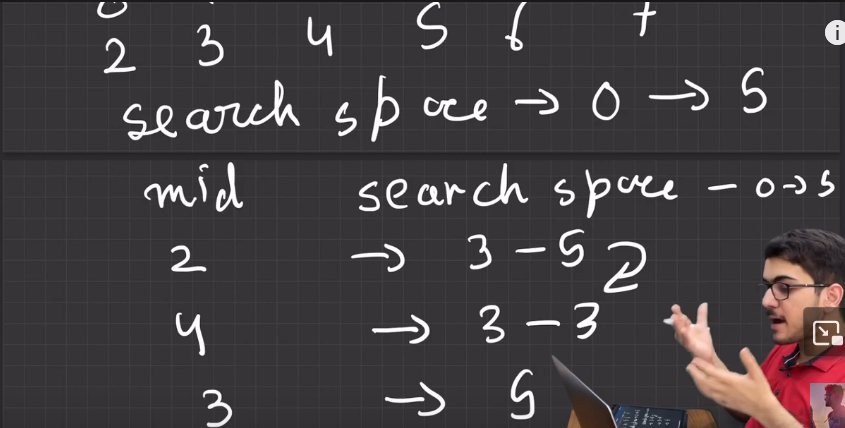 2 3 4 5 6 7
search space → 0 → 5
mid search space - 0→5
2 → 3 - 5 2
4 → 3 - 3
3 → 5